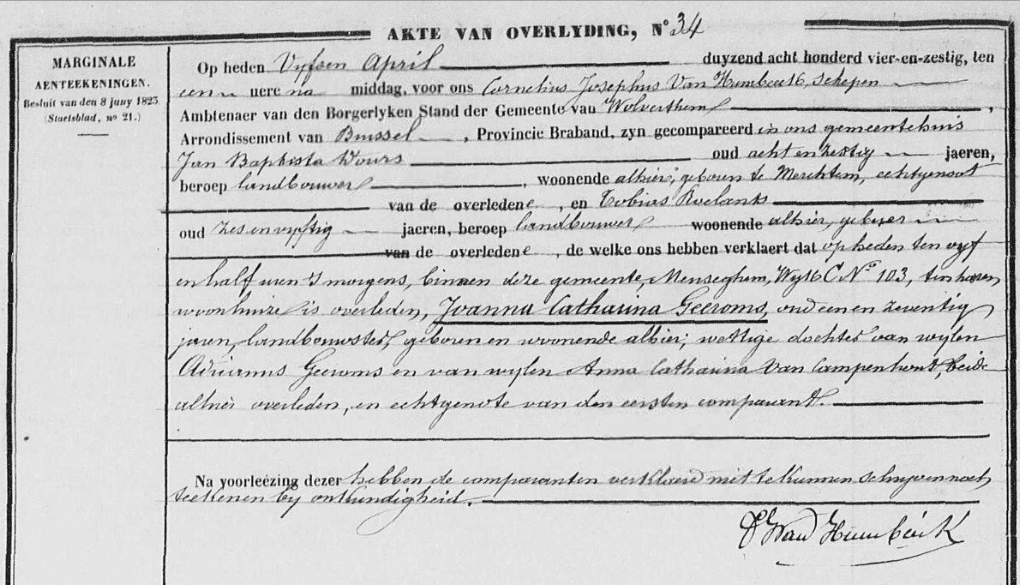 AKTE VAN OVERLYDING, N° 34
MARGINALE
AENTEEKENINGEN.
Besluit van den 8 juny 1823
(Staetsblad, n° 21.)
Op heden Vyftien April duyzend acht honderd vier-en-zestig, ten
een uere na middag, voor ons Cornelius Josephus Van Humbeeck, schepen
Ambtenaer van den Borgerlyken Stand der Gemeente van Wolverthem,
Arrondissement van Brussel, Provincie Braband, zyn gecompareerd in ons gemeentehuis
Jan Baptista Wours oud acht en zestig jaeren,
beroep landbouwer, woonende alhier, geboren te Merchtem, echtgenoot
van de overledene, en Tobias Roelants
oud zes en vyftig jaeren, beroep landbouwer woonende alhier, gebuer
van de overledene, de welke ons hebben verklaert dat op heden ten vyf
en half uren 's morgens, binnen deze gemeente, Meuseghem, Wyk C N° 103, ten haren
woonhuize is overleden, Joanna Catharina Geeroms, oud een en zeventig
jaren, landbouwster, geboren en woonende alhier, wettige dochter van wylen
Adrianus Geeroms en van wylen Anna Catharina Van Campenhout, beide
alhier overleden, en echtgenote van den eersten comparant.
Na voorleézing dezer hebben de comparanten verklaerd niet te kunnen schryven noch
teekenen by onkundigheid.
Van Humbeeck